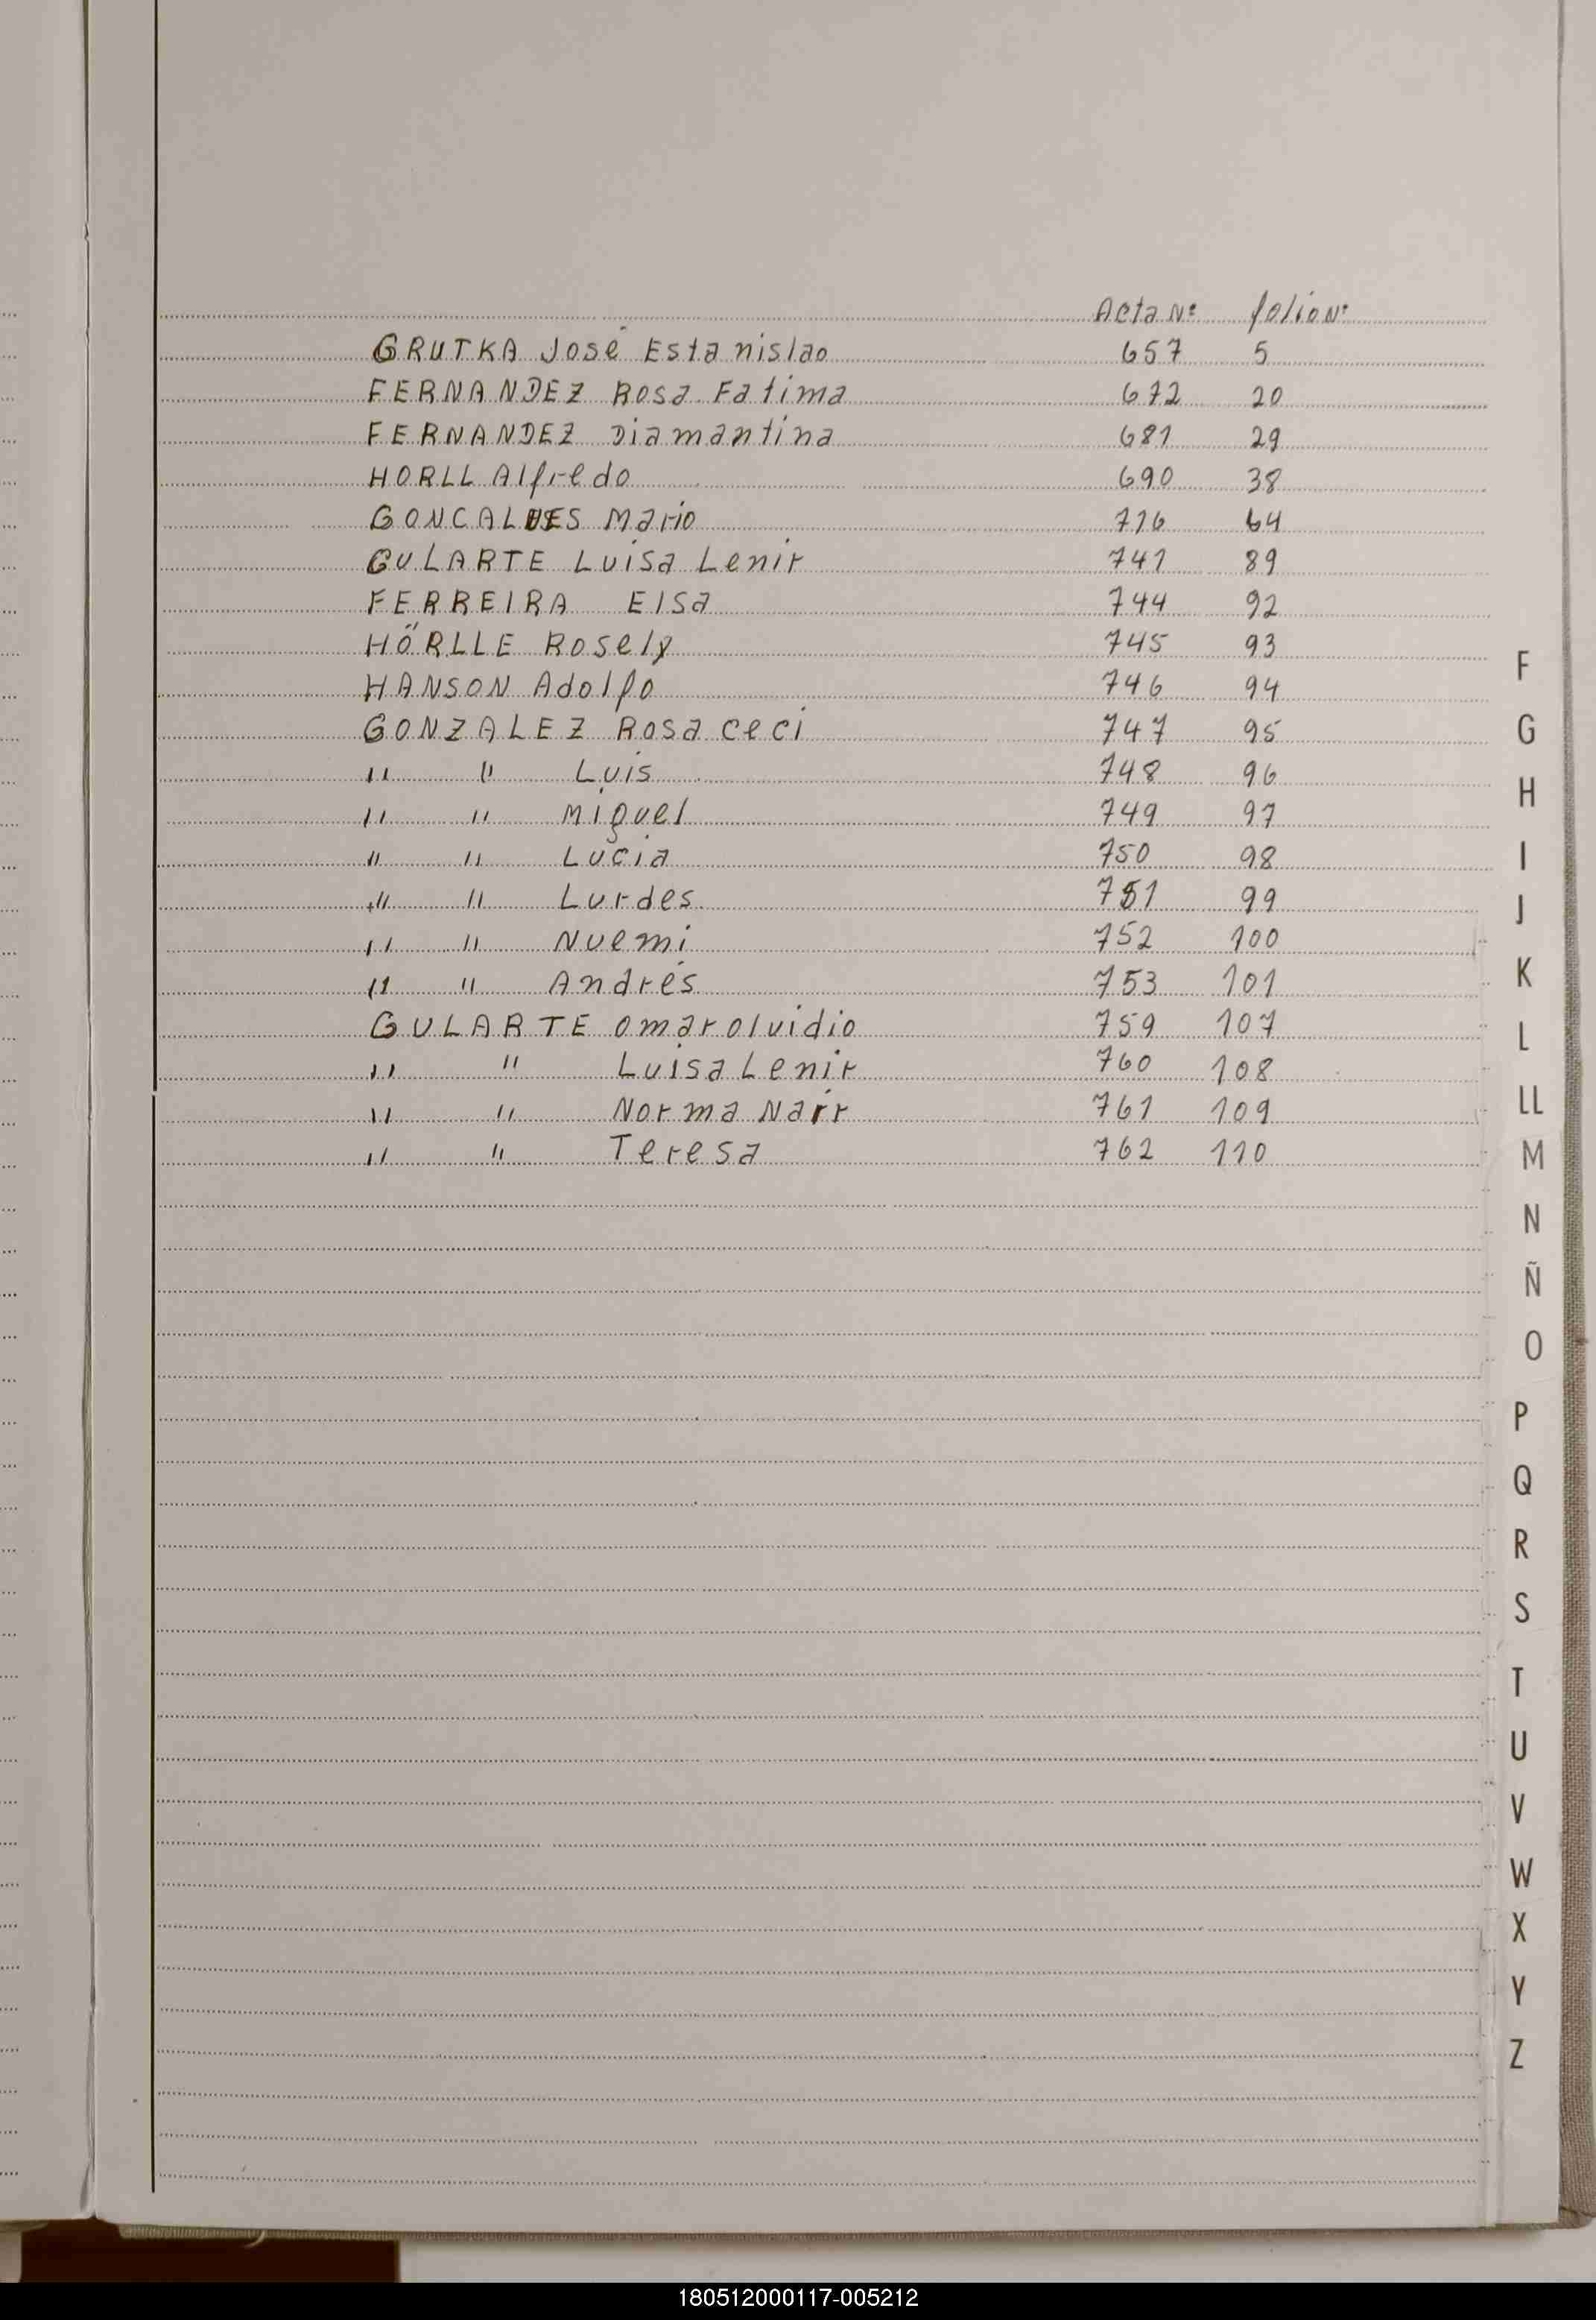 Acta Nº folio Nº
GRUTKA José Estanislao 657 5
FERNANDEZ Rosa Fatima 672 20
FERNANDEZ Diamantina 681 29
HORLL Alfredo 690 38
GONCALVES Mario 716 64
GULARTE Luisa Lenir 741 89
FERREIRA Elsa 744 92
HÖRLLE Rosely 745 93
HANSON Adolfo 746 94
GONZALEZ Rosa Ceci 747 95
" " Luis 748 96
" " Miguel 749 97
" " Lucia 750 98
" " Lurdes 751 99
" " Nuemi 752 100
" " Andrés 753 101
GULARTE Omar Olvidio 759 107
" " Luisa Lenir 760 108
" " Norma Nair 761 109
" " Teresa 762 110
F
G
H
I
J
K
L
LL
M
N
Ñ
O
P
Q
R
S
T
U
V
W
X
Y
Z
180512000117-005212